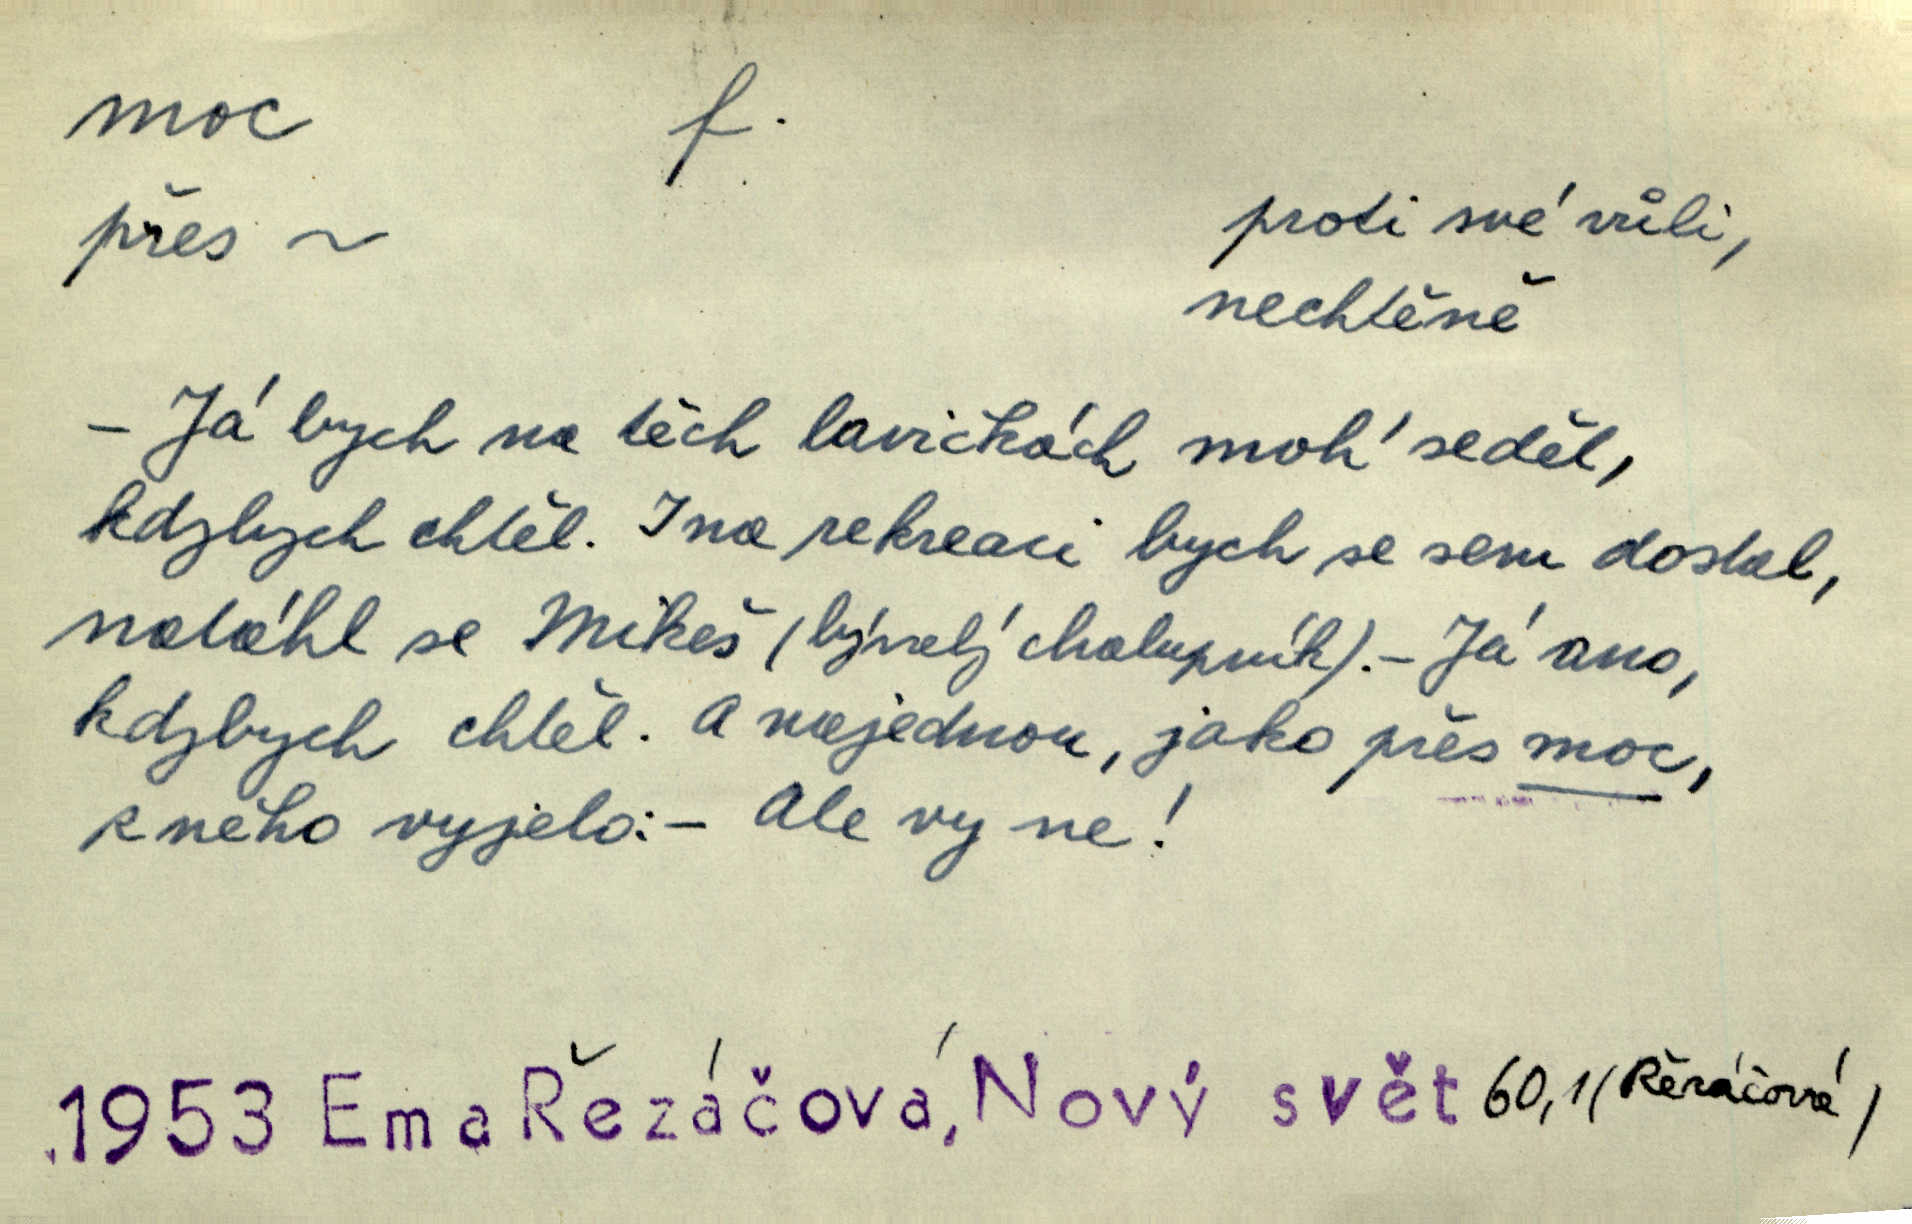 moc f.
přes ~
proti své vůli,
nechtěně
– Já bych na těch lavičkách moh' seděl,
kdybych chtěl. I na rekreaci bych se sem dostal,
natáhl se Mikeš (bývalý chalupník). – Já ano,
kdybych chtěl. A najednou, jako přes moc,
z něho vyjelo: – Ale vy ne!
1953 Ema Řezáčová, Nový svět 60,1 (Řezáčová)